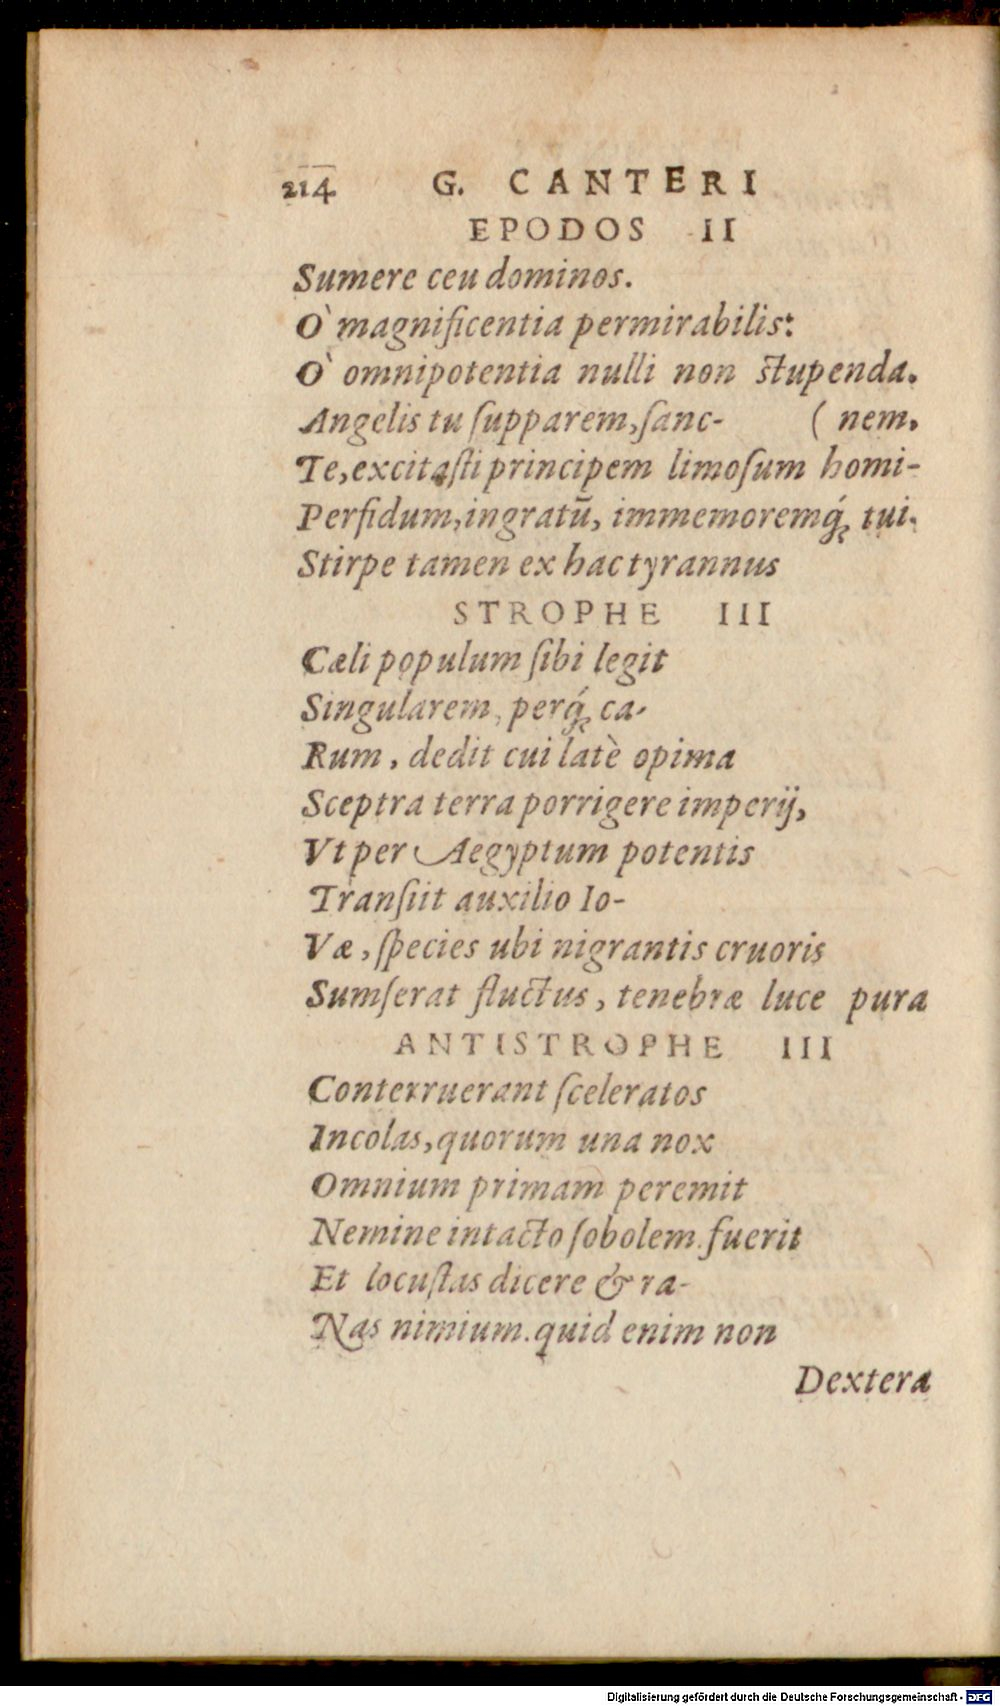 214 G. CANTERI
EPODOS II
Sumere ceu dominos.
O` magnificentia permirabilis:
O` omnipotentia nulli non stupenda.
Angelis tu ſupparem,ſanc- ( nem.
Te,excitaſti principem limoſum homi-
Perfidum,ingratū, immemoremq́; tui.
Stirpe tamen ex hac tyrannus
STROPHE III
Cæli populum ſibi legit
Singularem, perq́; ca-
Rum, dedit cui latè opima
Sceptra terra porrigere imperij,
Vt per Aegyptum potentis
Tranſiit auxilio Io-
Væ, ſpecies ubi nigrantis cruoris
Sumſerat fluctus, tenebræ luce pura
ANTISTROPHE III
Conterruerant ſceleratos
Incolas,quorum una nox
Omnium primam peremit
Nemine intacto ſobolem.fuerit
Et locuſtas dicere & ra-
Nas nimium.quid enim non
Dextera
Digitalisierung gefördert durch die Deutsche Forschungsgemeinschaft - DFG